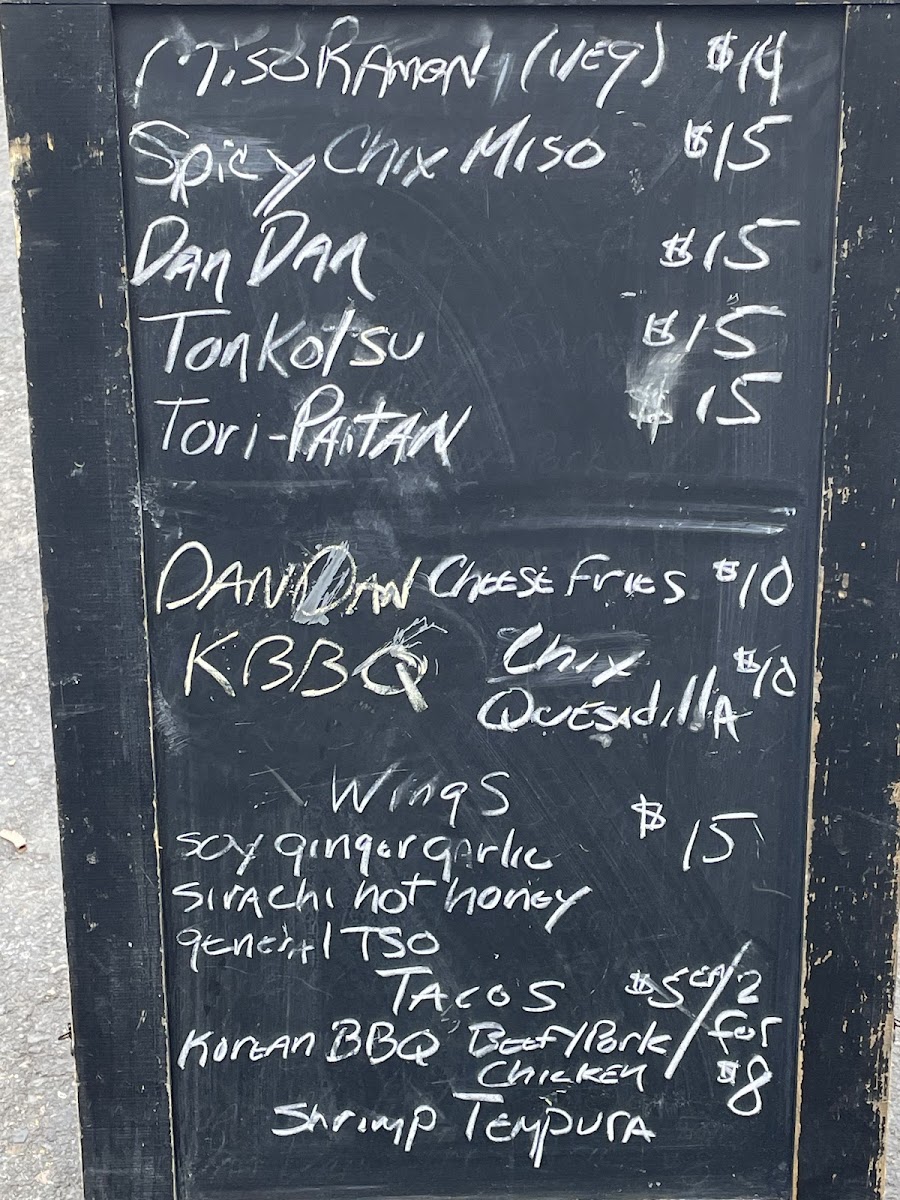 Miso RAMEN (VEg) $14
Spicy Chix Miso $15
Dan Dan $15
Tonkotsu $15
Tori-PAiTAN $15
DAN DAN CHEESE FriES $10
KBBQ Chix $10
QuESAdillA
Wings $15
soy ginger garlic
SirAchi hot honey
gEnErAl TSO
TACOS $5 EA/2
KorEAN BBQ BEEF/Pork for
CHICKEN $8
Shrimp TEmpurA